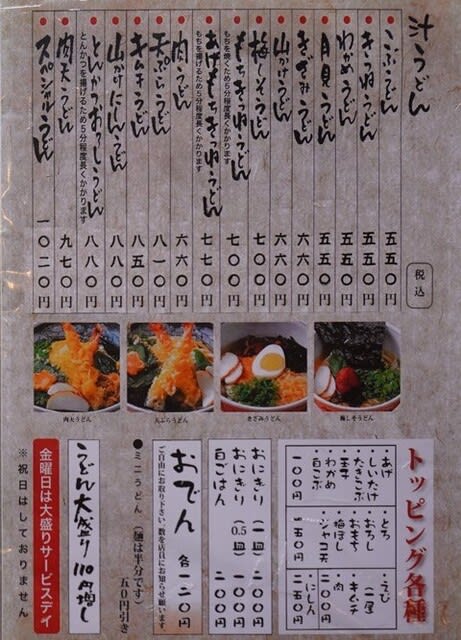 汁うどん
税込
こぶうどん 五五〇円
きつねうどん 五五〇円
わかめうどん 五五〇円
月見うどん 五五〇円
きざみうどん 六六〇円
山かけうどん 六六〇円
梅しそうどん 七〇〇円
もちきつねうどん 七〇〇円
もちを焼くため5分程度長くかかります
あげもちきつねうどん 七七〇円
もちを揚げるため5分程度長くかかります
肉うどん 六六〇円
天ぷらうどん 八一〇円
キムチうどん 八五〇円
山かけにしんうどん 八八〇円
とんかつおろしうどん 八八〇円
とんかつを揚げるため5分程度長くかかります
肉天うどん 九七〇円
スペシャルうどん 一〇二〇円
肉天うどん
天ぷらうどん
きざみうどん
梅しそうどん
トッピング各種
・あげ
・しいたけ
・たきこぶ
・玉子
・わかめ
・白こぶ
一〇〇円
・とろ
・おろし
・おもち
・梅ぼし
・ジャコ天
一五〇円
・えび 一尾
・キムチ
・肉
二〇〇円
・にしん
二五〇円
おにぎり（一皿）二〇〇円
おにぎり（0.5皿）一〇〇円
白ごはん 二〇〇円
おでん 各一二〇円
ご自由にお取り下さい、数を店員にお知らせ願います
●ミニうどん（麺は半分です）
五〇円引き
うどん大盛り 110円増し
金曜日は大盛りサービスデイ
※祝日はしておりません